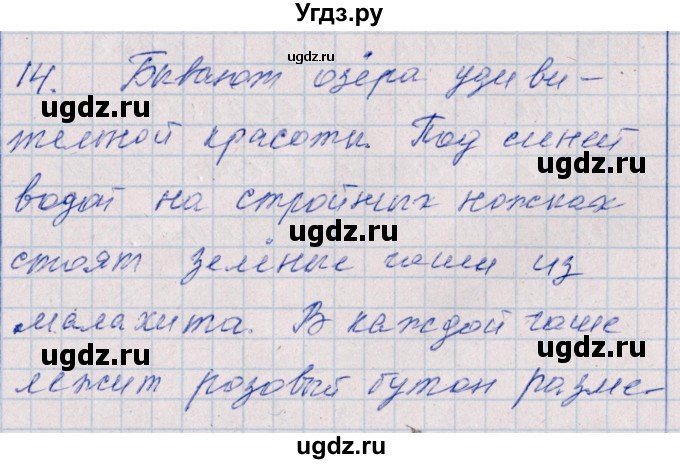 Угдз.ру
14. Бывают озёра удиви-
тельной красоты. Под синей
водой на стройных ножках
стоят зелёные чаши из
малахита. В каждой чаше
лежит розовый бутон разме-
ugdz.ru ugdz.ru
ugdz.ru
ugdz.ru
ugdz.ru
ugdz.ru
ugdz.ru
ugdz.ru
ugdz.ru
ugdz.ru